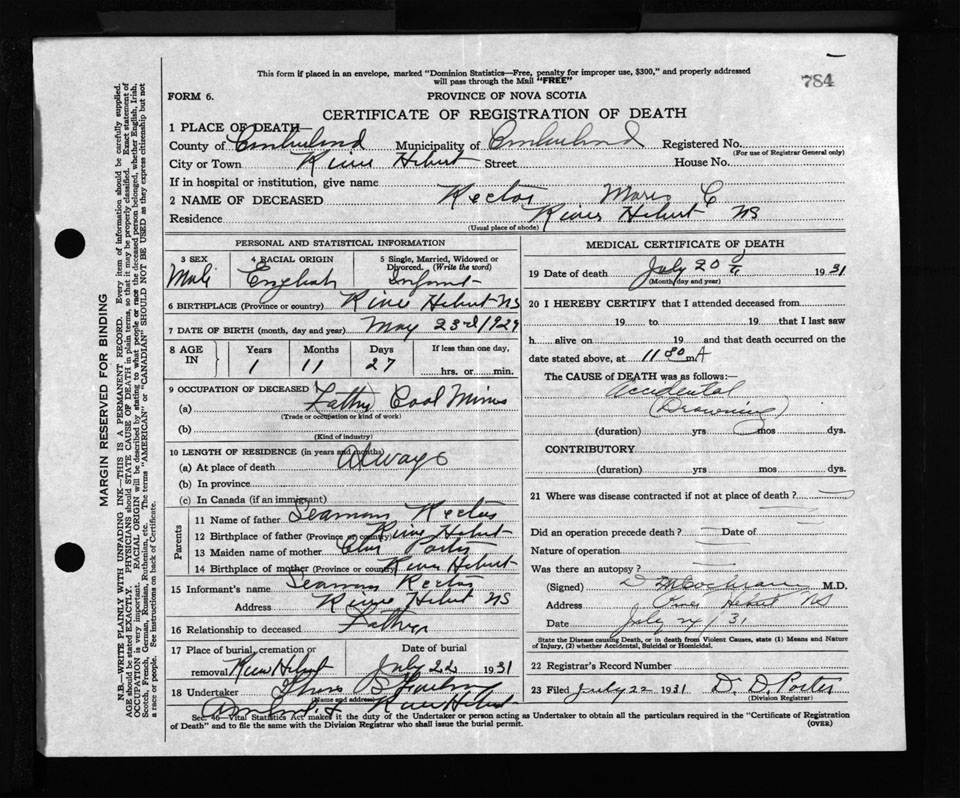 This form if placed in an envelope, marked "Dominion Statistics—Free, penalty for improper use, $300," and properly addressed
will pass through the Mail "FREE"
784
FORM 6.
PROVINCE OF NOVA SCOTIA
CERTIFICATE OF REGISTRATION OF DEATH
1 PLACE OF DEATH—
County of Cumberland Municipality of Cumberland Registered No.
(For use of Registrar General only)
City or Town River Hebert Street House No.
If in hospital or institution, give name
2 NAME OF DECEASED Rector C
Residence River Hebert NS
(Usual place of abode)
PERSONAL AND STATISTICAL INFORMATION
3 SEX
4 RACIAL ORIGIN
5 Single, Married, Widowed or
Divorced. (Write the word)
Male English Infant
6 BIRTHPLACE (Province or country) River Hebert NS
7 DATE OF BIRTH (month, day and year) May 23rd/1929
8 AGE
IN
Years Months Days
If less than one day,
1 11 27
hrs. or min.
9 OCCUPATION OF DECEASED (Father) Coal Miner
(a)
(Trade or occupation or kind of work)
(b)
(Kind of industry)
10 LENGTH OF RESIDENCE (in years and months)
(a) At place of death Always
(b) In province
(c) In Canada (if an immigrant)
Parents
11 Name of father Seaman Rector
12 Birthplace of father (Province or country) River Hebert
13 Maiden name of mother Porter
14 Birthplace of mother (Province or country) River Hebert
15 Informant's name Seaman Rector
Address River Hebert NS
16 Relationship to deceased Father
17 Place of burial, cremation or
removal River Hebert
Date of burial
July 22 1931
18 Undertaker
(Name and address)
Amherst & River Hebert
MEDICAL CERTIFICATE OF DEATH
19 Date of death July 20 1931
(Month/day and year)
20 I HEREBY CERTIFY that I attended deceased from
19 to 19 that I last saw
h alive on 19 and that death occurred on the
date stated above, at 11 30 m A
The CAUSE of DEATH was as follows:—
Accidental
(Drowning)
(duration) yrs mos dys.
CONTRIBUTORY
(duration) yrs mos dys.
21 Where was disease contracted if not at place of death?
Did an operation precede death? Date of
Nature of operation
Was there an autopsy?
(Signed) D M Cochrane M.D.
Address River Hebert NS
Date July 24/31
State the Disease causing Death, or in death from Violent Causes, state (1) Means and Nature
of Injury, (2) whether Accidental, Suicidal or Homicidal.
22 Registrar's Record Number
23 Filed July 22 1931 D. D. Porter
(Division Registrar)
Sec. 46—Vital Statistics Act makes it the duty of the Undertaker or person acting as Undertaker to obtain all the particulars required in the "Certificate of Registration
of Death" and to file the same with the Division Registrar who shall issue the burial permit.
(OVER)
MARGIN RESERVED FOR BINDING
N.B.—WRITE PLAINLY WITH UNFADING INK—THIS IS A PERMANENT RECORD. Every item of information should be carefully supplied.
AGE should be stated EXACTLY. PHYSICIANS should STATE CAUSE OF DEATH in plain terms, so that it may be properly classified. Exact statement of
OCCUPATION is very important. RACIAL ORIGIN will be described by stating to what people or race the deceased person belonged, whether English, Irish,
Scotch, French, German, Russian, Ruthenian, etc. The terms "AMERICAN" or "CANADIAN" SHOULD NOT BE USED as they express citizenship but not
a race or people. See instructions on back of Certificate.